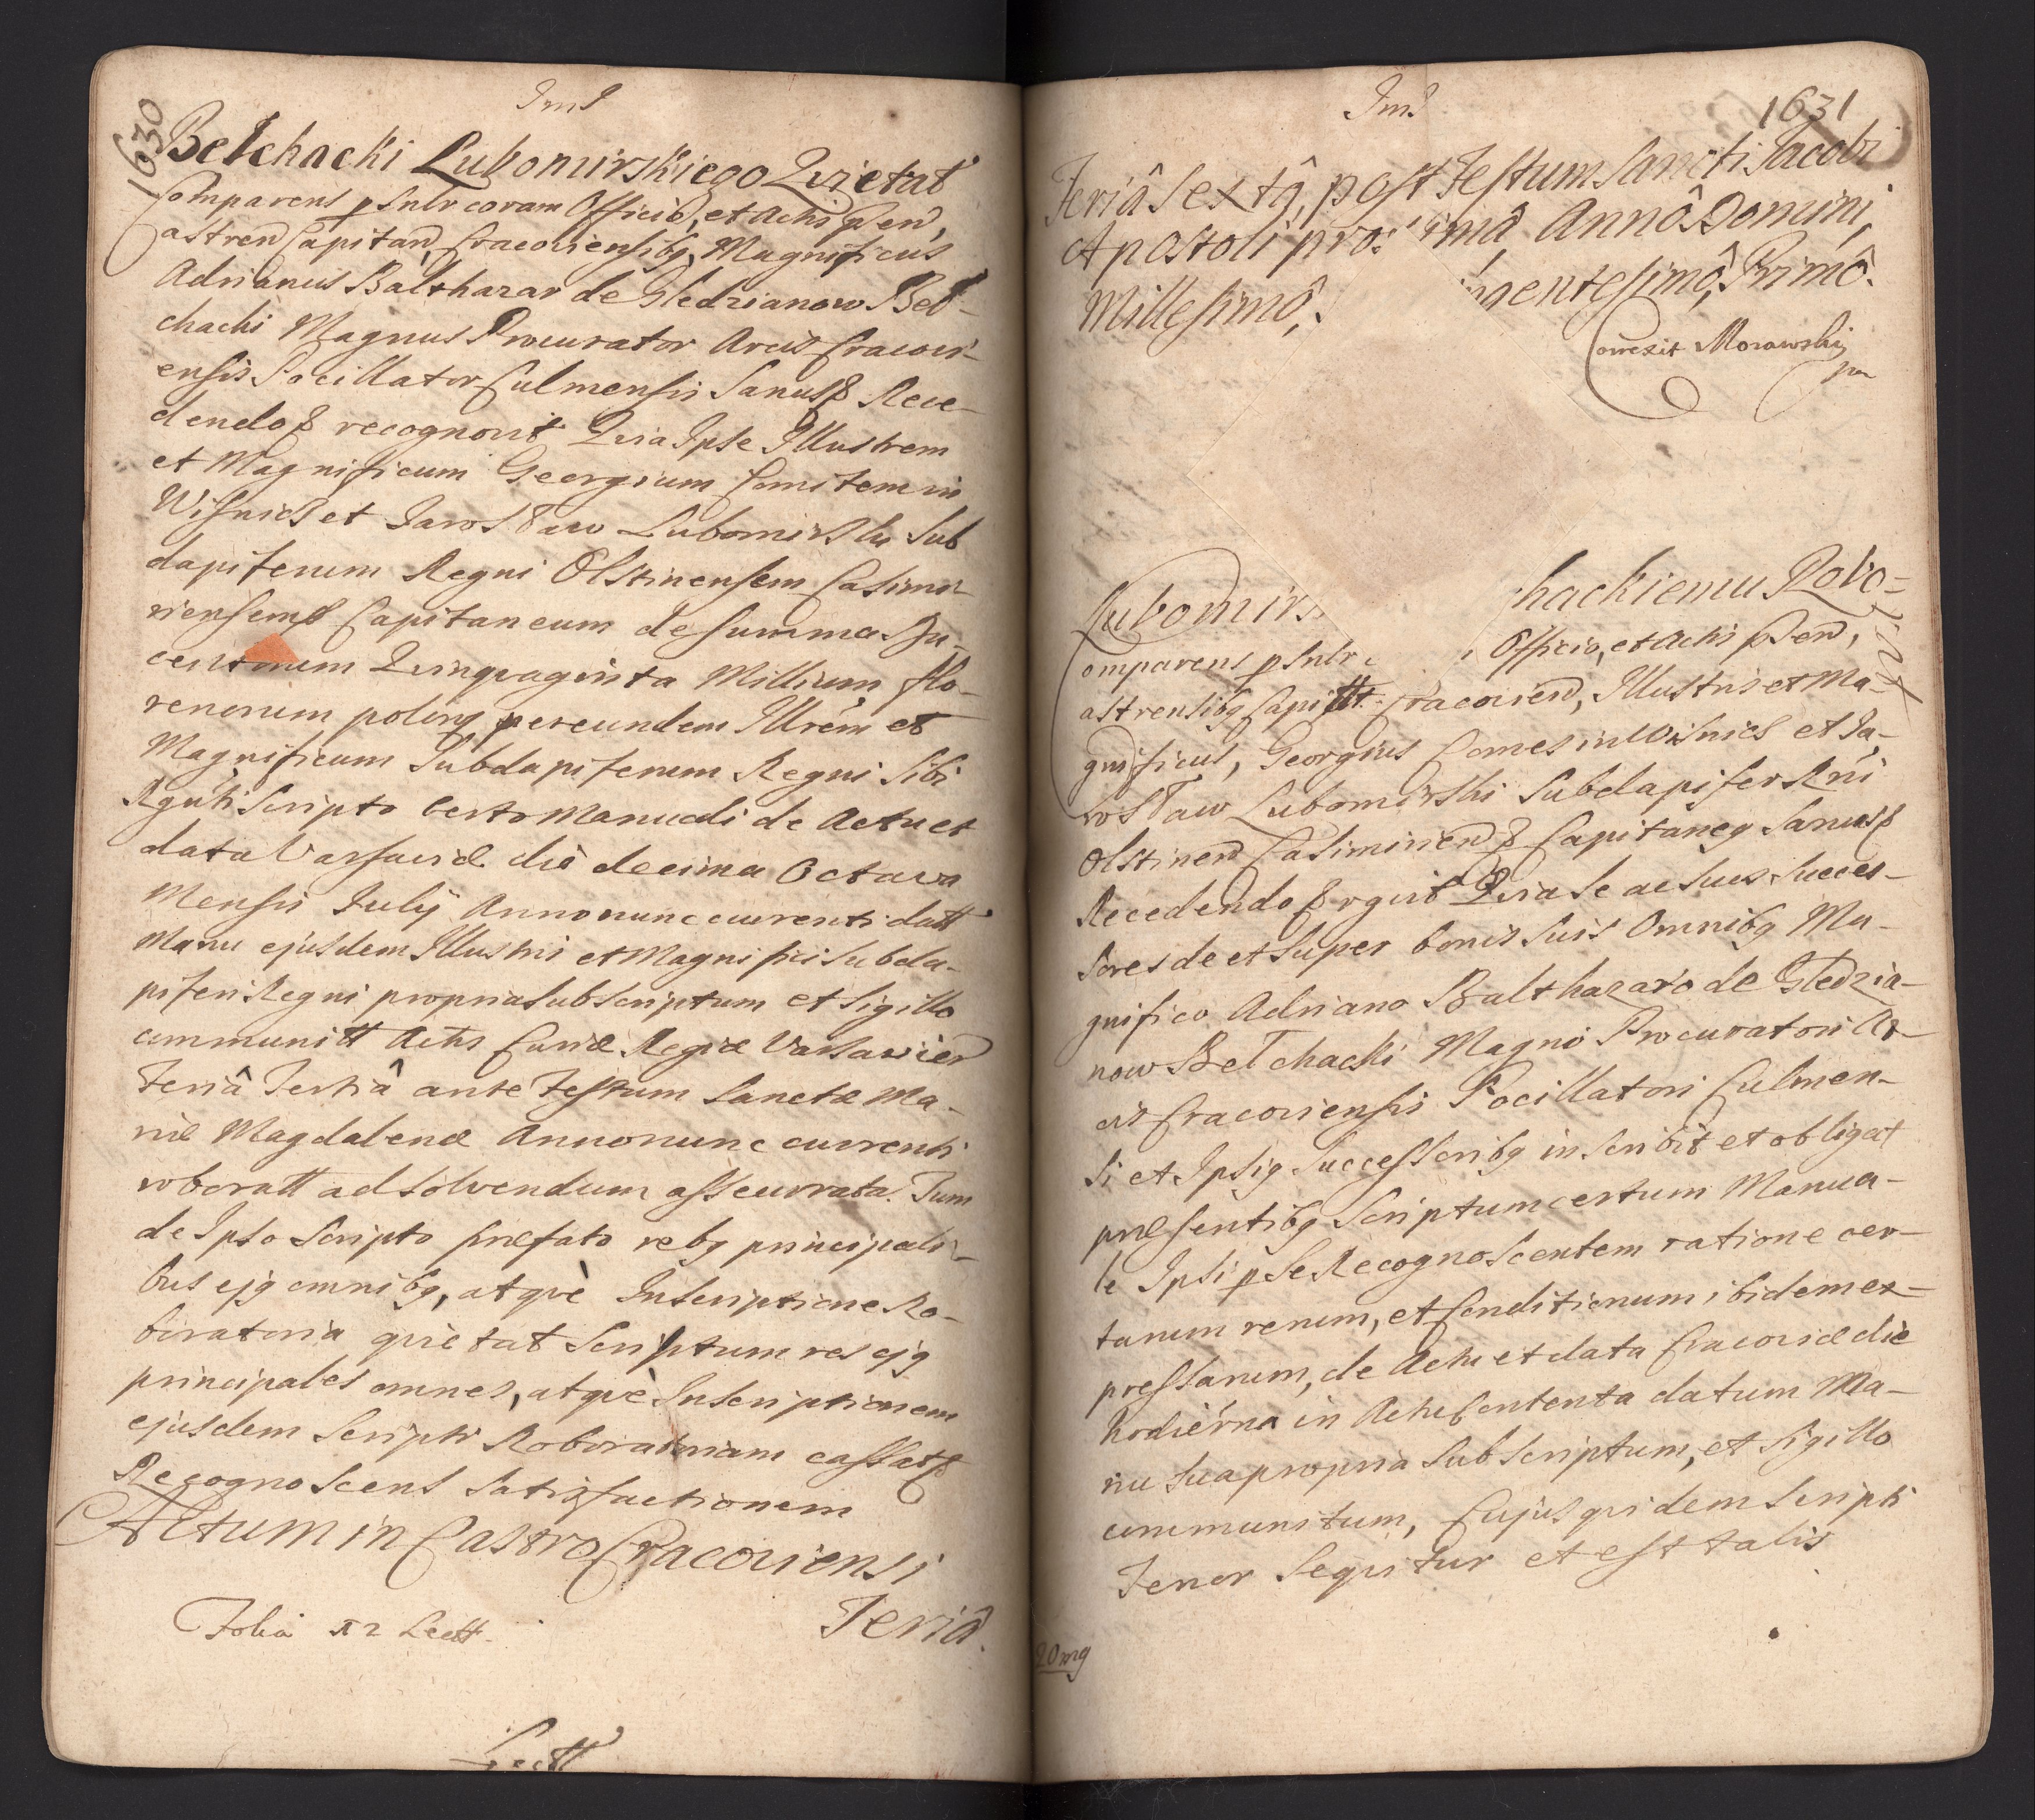 1630
Ind
Bełchacki Lubomirskiego Qvietat
Comparens p̱sntr coram Officio, et Actis p̱sen,
astren Capitan, Cracoviensibg, Magnificus
Adrianus Balthazar de Gledzianow Beł-
chacki Magnus Procurator Arcis Cracovi-
ensis Pocillator Culmensis Sanus& Rece-
dendo& recognovit Qvia Ipse Illustrem
et Magnificum Georgium Comitem in
Wisnicz et Jarosław Lubomirski Sub
dapiferum Regni Olstinensem Casimir
riensemq Capitaneum de summa Du-
centorum Qvinqvaginta Millium flo-
renorum polonq per eundem Illrem et
Magnificum Subdapiferum Regni Sibi
Rgnti Scripto Certo Manuali de Actu et
data Varsaviæ die decima Octava
Mensis Julij Anno nunc currenti datt
Manu ejusdem Illustris et Magnifici Subda-
piferi Regni propria subscriptum et Sigillo
communitt Actis Curiæ Regiæ Varsavien
Feriâ Tertiâ ante Festum Sanctæ Ma-
riæ Magdalenæ Anno nunc currenti
roboratt ad solvendum assecurata. Tum
de Ipso Scripto præfato rebg principali-
bus ejg omnibg, atqvè Inscriptione Ro-
boratoria qvietat Scriptum res ejg
principales omnes, atqvè Inscriptionem
ejusdem Scripti Roboratoriam cassat&
Recognoscens Satisfactionem
Actum in Castro Cracoviensi
Folia Lectt.
Feriâ.
Lectt
Ind
1631
Feriâ Sextâ, post Festum Sancti Jacobi
Apostoli pro: imâ, Annô Domini,
Millesimô, ingentesimô, Primô.
Correxit Morawski
Lubomirs hackiemu Robo-
rat
omparens p̱sntr Officio, et Actis p̱sen,
astrensibg Capitt. Cracovien, Illustris et Ma-
gnificus, Georgius Comes in Wisnicz et Ja-
rosław Lubomirski Subdapifer Rni
Olstinen Casimirien & Capitaneg Sanus&
Recedendo & rgvit Qvia Se ac suos Succes-
sores de et super bonis suis Omnibg Ma-
gnifico Adriano Balthazaro de Gledzia-
now Bełchacki Magno Procuratori Ar-
cis Cracoviensis Pocillatori Culmen-
si et Ipsig Successoribg inscribit et obligat
præsentibg Scriptum certum Manua-
le Ipsi p̱ se Recognoscentem ratione cer-
tarum rerum, et Conditionum ibidem ex-
pressarum, de Actu et data Cracoviæ die
hodierna in Actu Contenta datum Ma-
nu sua propria subscriptum, et Sigillo
communitum, Cujusqvidem Scripti
Tenor Seqvitur et est talis
20 mg